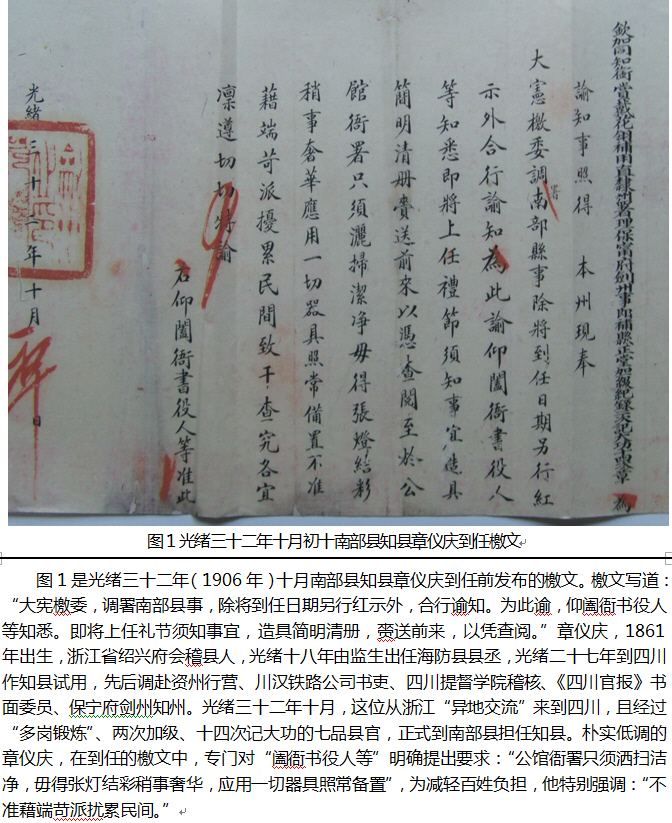 欽加同知銜賞戴花翎補用直隸州署理保寧府劍州事即補縣正堂加級紀錄章 為
諭知事照得 本州現奉
大憲檄委調署南部縣事除將到任日期另行紅
示外合行諭知為此諭仰闔衙書役人
等知悉即將上任禮節須知事宜造具
簡明清册賫送前來以憑查閱至於公
館衙署只須灑掃潔净毋得張燈結彩
稍事奢華應用一切器具照常備置不准
藉端苛派擾累民間致干查究各宜
凛遵切切特諭
右仰闔衙書役人等准此
光緒三十二年十月 日
图1光绪三十二年十月初十南部县知县章仪庆到任檄文
图1是光绪三十二年（1906年）十月南部县知县章仪庆到任前发布的檄文。檄文写道：
“大宪檄委，调署南部县事，除将到任日期另行红示外，合行谕知。为此谕，仰阖衙书役人
等知悉。即将上任礼节须知事宜，造具简明清册，赍送前来，以凭查阅。”章仪庆，1861
年出生，浙江省绍兴府会稽县人，光绪十八年由监生出任海防县县丞，光绪二十七年到四川
作知县试用，先后调赴资州行营、川汉铁路公司书吏、四川提督学院稽核、《四川官报》书
面委员、保宁府剑州知州。光绪三十二年十月，这位从浙江“异地交流”来到四川，且经过
“多岗锻炼”、两次加级、十四次记大功的七品县官，正式到南部县担任知县。朴实低调的
章仪庆，在到任的檄文中，专门对“阖衙书役人等”明确提出要求：“公馆衙署只须洒扫洁
净，毋得张灯结彩稍事奢华，应用一切器具照常备置”，为减轻百姓负担，他特别强调：“不
准藉端苛派扰累民间。”